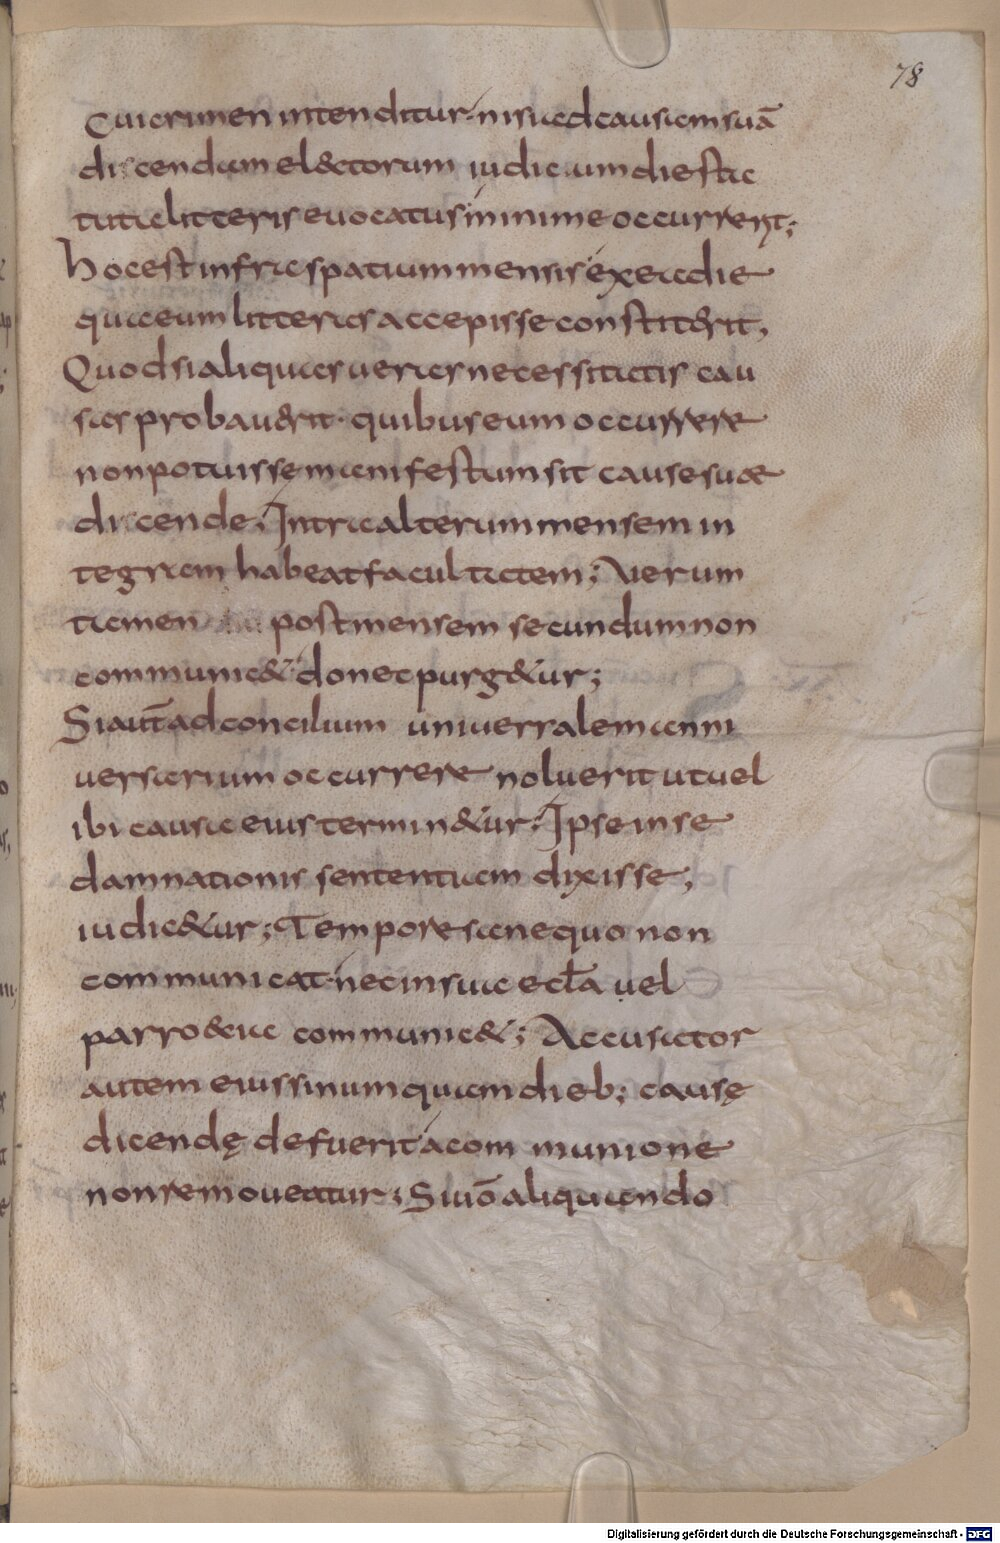 78
cui crimen intenditur· nisi ad causam suā
dicendam electorum iudicum die sta
tuta litteris euocatus minime occurrerit;
hoc est infra spatium mensis ex ea die
qua eum litteras accepisse constiterit,
Quod si aliquas ueras necessitatis cau
sas probauerit· quibus eum occurrere
non potuisse manifestum sit cause suae
dicende; Intra alterum mensem in
tegram habeat facultatem; Uerum
tamen post mensem secundum non
communic&· donec purg&ur;
Si aut̄ ad concilium uniuersalem anni
uersarium occurrere noluerit ut uel
ibi causa eius termin&ur; Ipse in se
damnationis sententiam dixisse,
iudic&ur; Tempore sane quo non
communicat· nec in sua ecl̄a uel
parrochia communic&; Accusator
autem eius si numquam dieb; causę
dicendę defuerit a communione
non remoueatur; Si uō aliquando
Digitalisierung gefördert durch die Deutsche Forschungsgemeinschaft - DFG